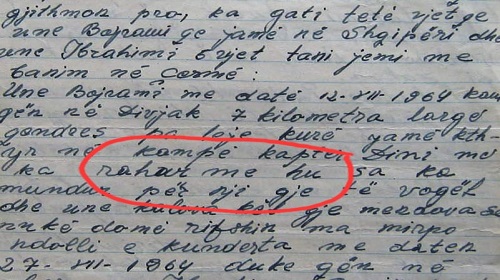 gjithmon pro, ka gati tetë vjet ge
une Bajrami ge jamë në Shqipëri dhe
une Ibrahimi 5 vjet tani jemi me
banim në Çermë:
Une Bajrami me datë 12-VII-1964 kam
gën në Divjak 7 kilometra largë
pa leje kurë jamë kth
yr në kampë kapter Dini më
ka rahur me hu sa ka
mundur për nji gje të vogël
dhe une
nukë domë ma mirpo
ndolli e kunderta me daten
27-VII-1964 duke gën në